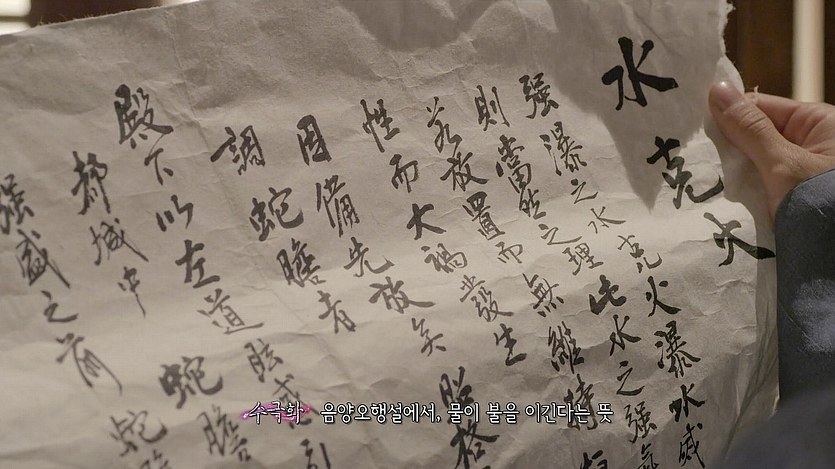 水克火
强瀑之水克火瀑水
則當然之理此水之强
若放置而無維持
性而大禍發生
因備先放矣 格
調蛇膽者
殿下以左道眩惑引
都城中 蛇膽
强盛之前 蛇
수극화 음양오행설에서, 물이 불을 이긴다는 뜻